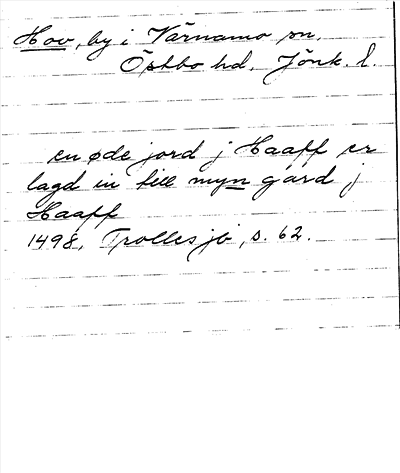 Hov, by i Värnamo sn,
Östbo hd, Jönk. l.
en øde jord j Haaff er
lagd in till myn gård j
Haaff
1498, Trolles jb, s. 62.